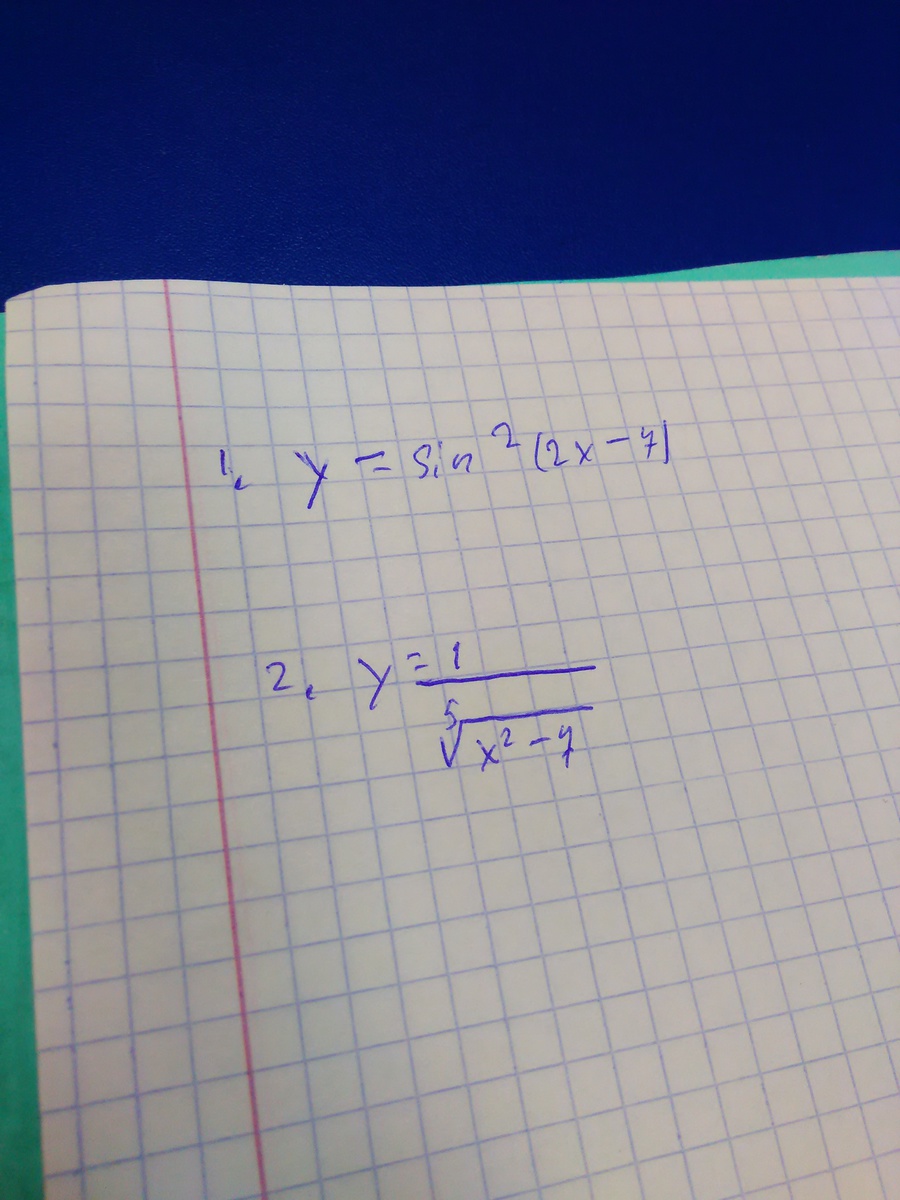 1. y = sin² (2x - 4)
2. y = 1 / ⁵√(x² - 4)